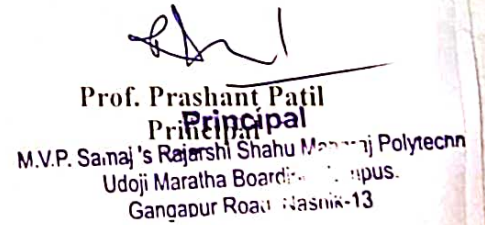 Prof. Prashant Patil
Principal
Principal
M.V.P. Samaj 's Rajarshi Shahu Polytecnn
Udoji Maratha
Gangapur Road Nasnik-13